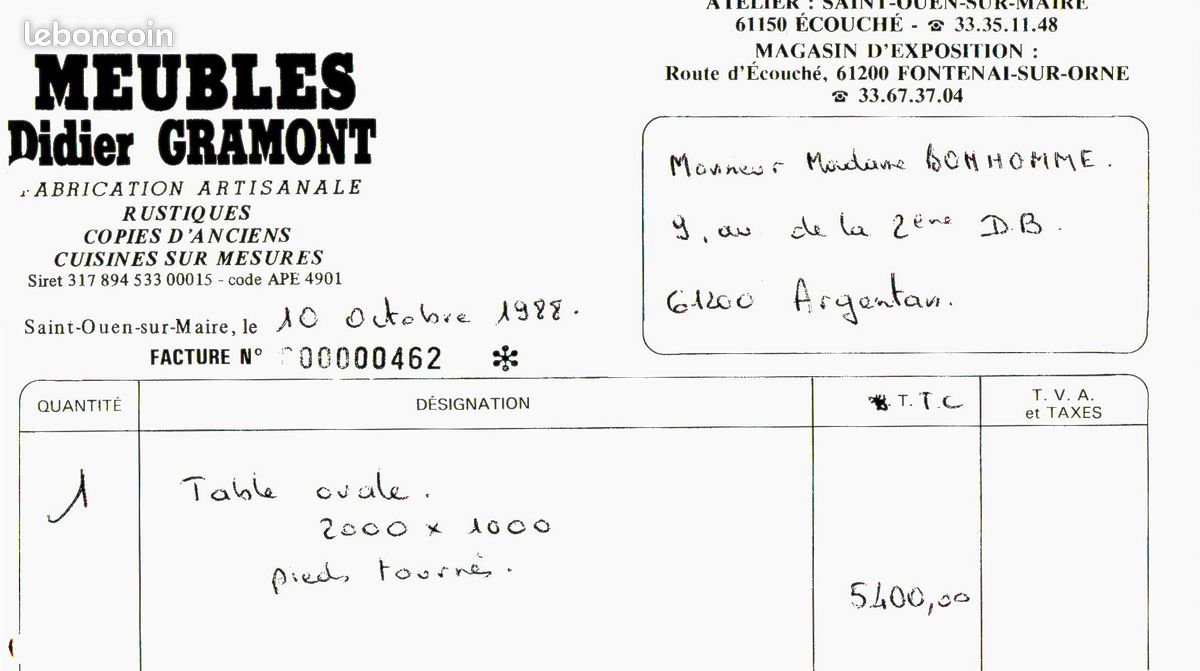 leboncoin
MEUBLES
Didier GRAMONT
FABRICATION ARTISANALE
RUSTIQUES
COPIES D'ANCIENS
CUISINES SUR MESURES
Siret 317 894 533 00015 - code APE 4901
ATELIER : SAINT-OUEN-SUR-MAIRE
61150 ÉCOUCHÉ - ☎ 33.35.11.48
MAGASIN D'EXPOSITION :
Route d'Écouché, 61200 FONTENAI-SUR-ORNE
☎ 33.67.37.04
Monsieur Madame BONHOMME.
9, av de la 2ème D.B.
61200 Argentan.
Saint-Ouen-sur-Maire, le 10 Octobre 1988.
FACTURE N° 00000462 *
QUANTITÉ DÉSIGNATION T. T C T. V. A.
et TAXES
1 Table ovale.
2000 x 1000
pieds tournés.
5400,00